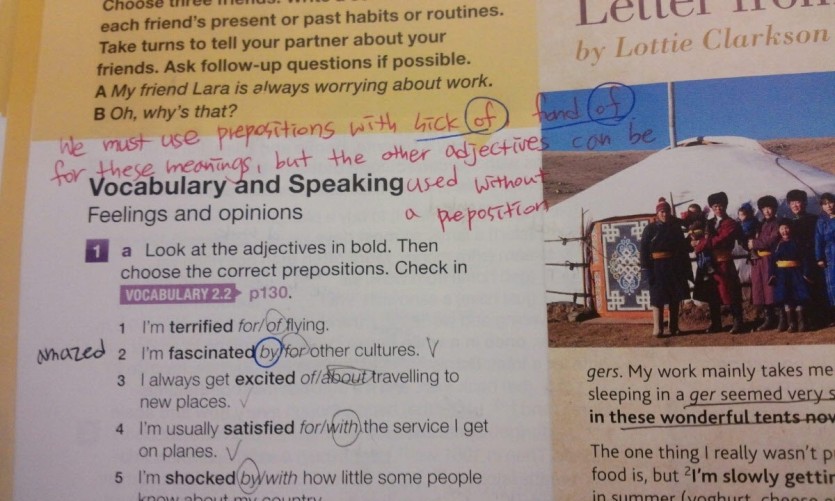 Choose three friends.
each friend's present or past habits or routines.
Take turns to tell your partner about your
friends. Ask follow-up questions if possible.
A My friend Lara is always worrying about work.
B Oh, why's that?
We must use prepositions with sick of fond of
for these meanings, but the other adjectives can be
used without
a preposition
Vocabulary and Speaking
Feelings and opinions
1 a Look at the adjectives in bold. Then
choose the correct prepositions. Check in
VOCABULARY 2.2 p130.
1 I'm terrified for/of flying.
amazed 2 I'm fascinated by/for other cultures. √
3 I always get excited of/about travelling to
new places. √
4 I'm usually satisfied for/with the service I get
on planes. √
5 I'm shocked by/with how little some people
know about my country.
Letter from
by Lottie Clarkson
gers. My work mainly takes me
sleeping in a ger seemed very s
in these wonderful tents now
The one thing I really wasn't p
food is, but ²I'm slowly gettin
in summer (yoghurt, cheese